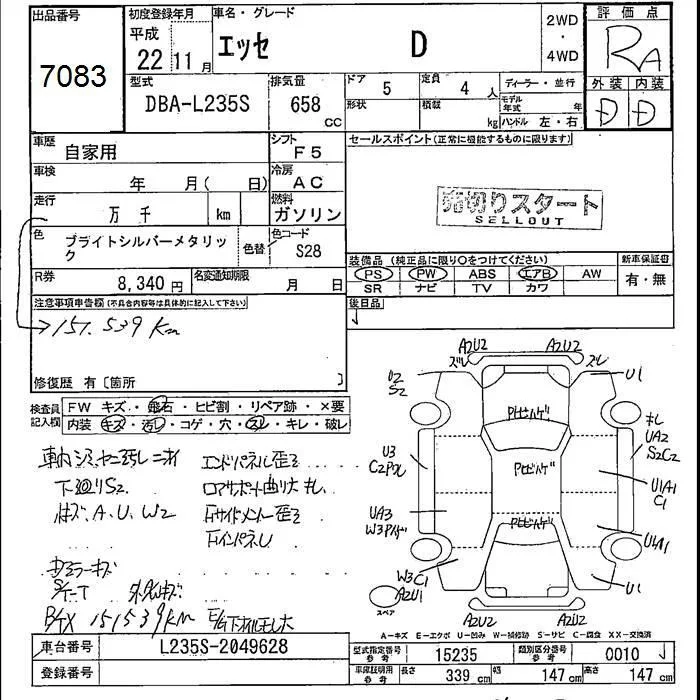 出品番号
7083
初度登録年月
平成
22 11 月
車名・グレード
エッセ D
2WD
・
4WD
評価点
RA
外装 内装
D D
型式
DBA-L235S
排気量
658
CC
ドア 5
定員 4 人
ディーラー・並行
形状
積載
kg
モデル年式 年
ハンドル 左・右
車歴
自家用
シフト
F5
車検
年 月( 日)
冷房
AC
走行
万 千 km
燃料
ガソリン
色
ブライトシルバーメタリッ
ク
色替
色コード
S28
R券
8,340 円
名変通知期限
月 日
セールスポイント(正常に機能するものに限ります)
売切りスタート
SELLOUT
装備品 (純正品に限り○をつけてください)
PS PW ABS エアB AW
SR ナビ TV カワ
新車保証書
有・無
後日品
注意事項申告欄(不具合内容等は具体的に記入して下さい)
151.539 Km
修復歴 有〔箇所 〕
検査員
記入欄
FW キズ・飛石・ヒビ割・リペア跡・×要
内装 キズ・汚レ・コゲ・穴・スレ・キレ・破レ
下廻りS2
A、U、W2
エンドパネル歪ミ
ロアサポート曲り大
インパネU
151539Km
A2U2 A2U2
ズレ ズレ
U2
S2
U1
キレ
UA2
S2C2
U3
UA3
U1A1
C1
U1A1
W3C1
A2U1
U1
スペア
A2U2 A2U2
A-キズ E-エクボ U-凹み W-補修跡 S-サビ C-腐食 XX-交換済
車台番号
L235S-2049628
登録番号
型式指定番号
参考
15235
類別区分番号
参考
0010
車庫証明用
参考
長さ 339 cm
幅 147 cm
高さ 147 cm